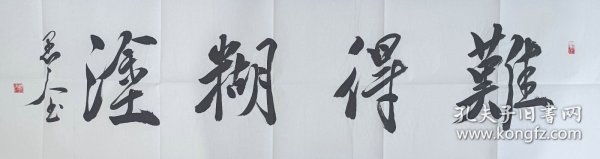 難得糊塗
孔夫子旧书网
www.kongfz.com